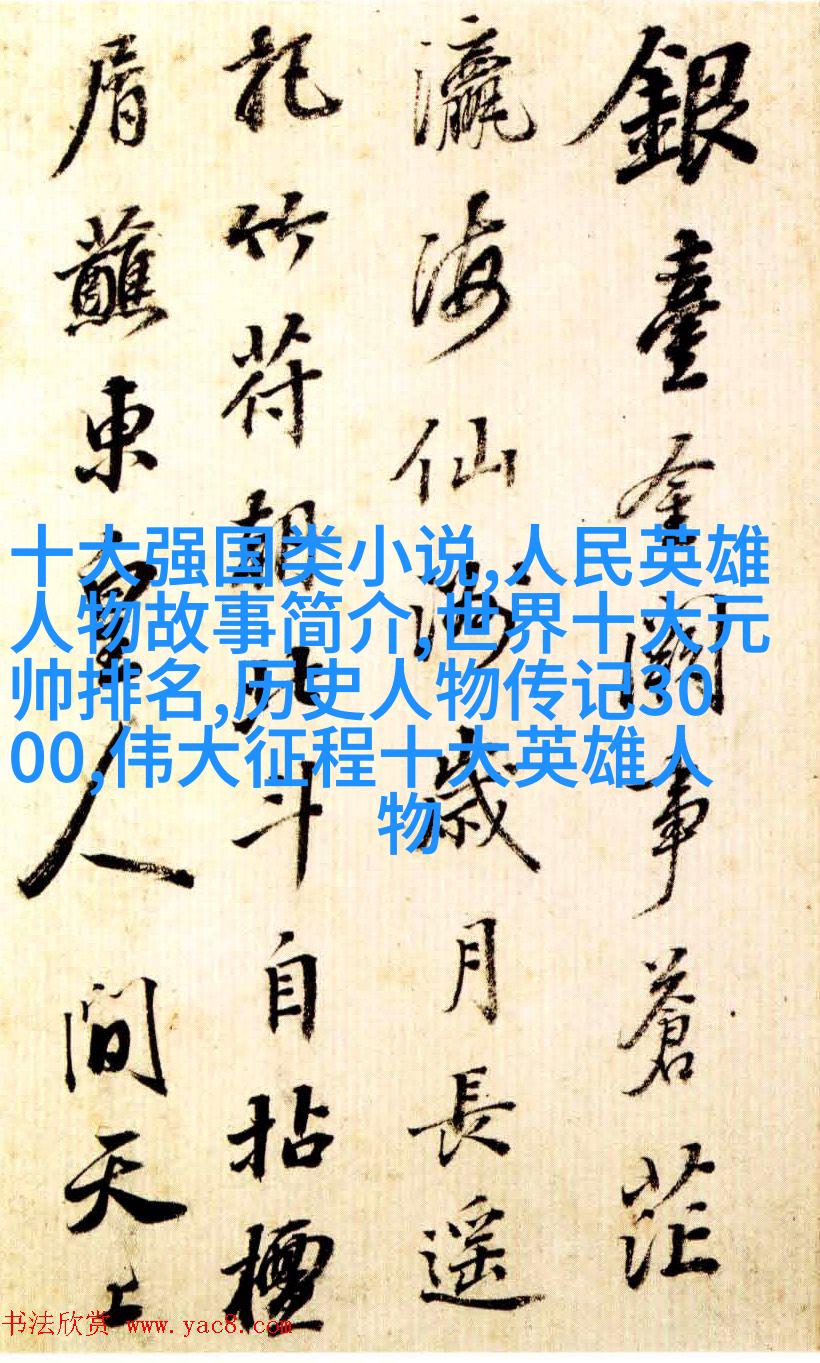 銀臺金闕事蒼茫
瀛海仙洲歲月長遥
竹符朝北斗自拈檀
屑蘸東皇人間天上
十大强国类小说,人民英雄
人物故事简介,世界十大元
帅排名,历史人物传记30
00,伟大征程十大英雄人
物
书法欣赏 www.yac8.com